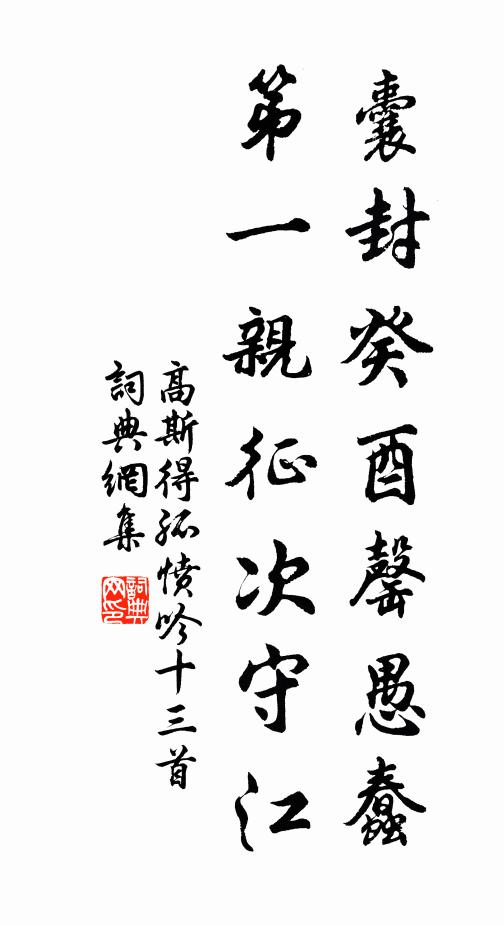 囊封癸酉罄愚蠢
第一親征次守江
高斯得孤憤吟十三首
詞典網集
詞典網印